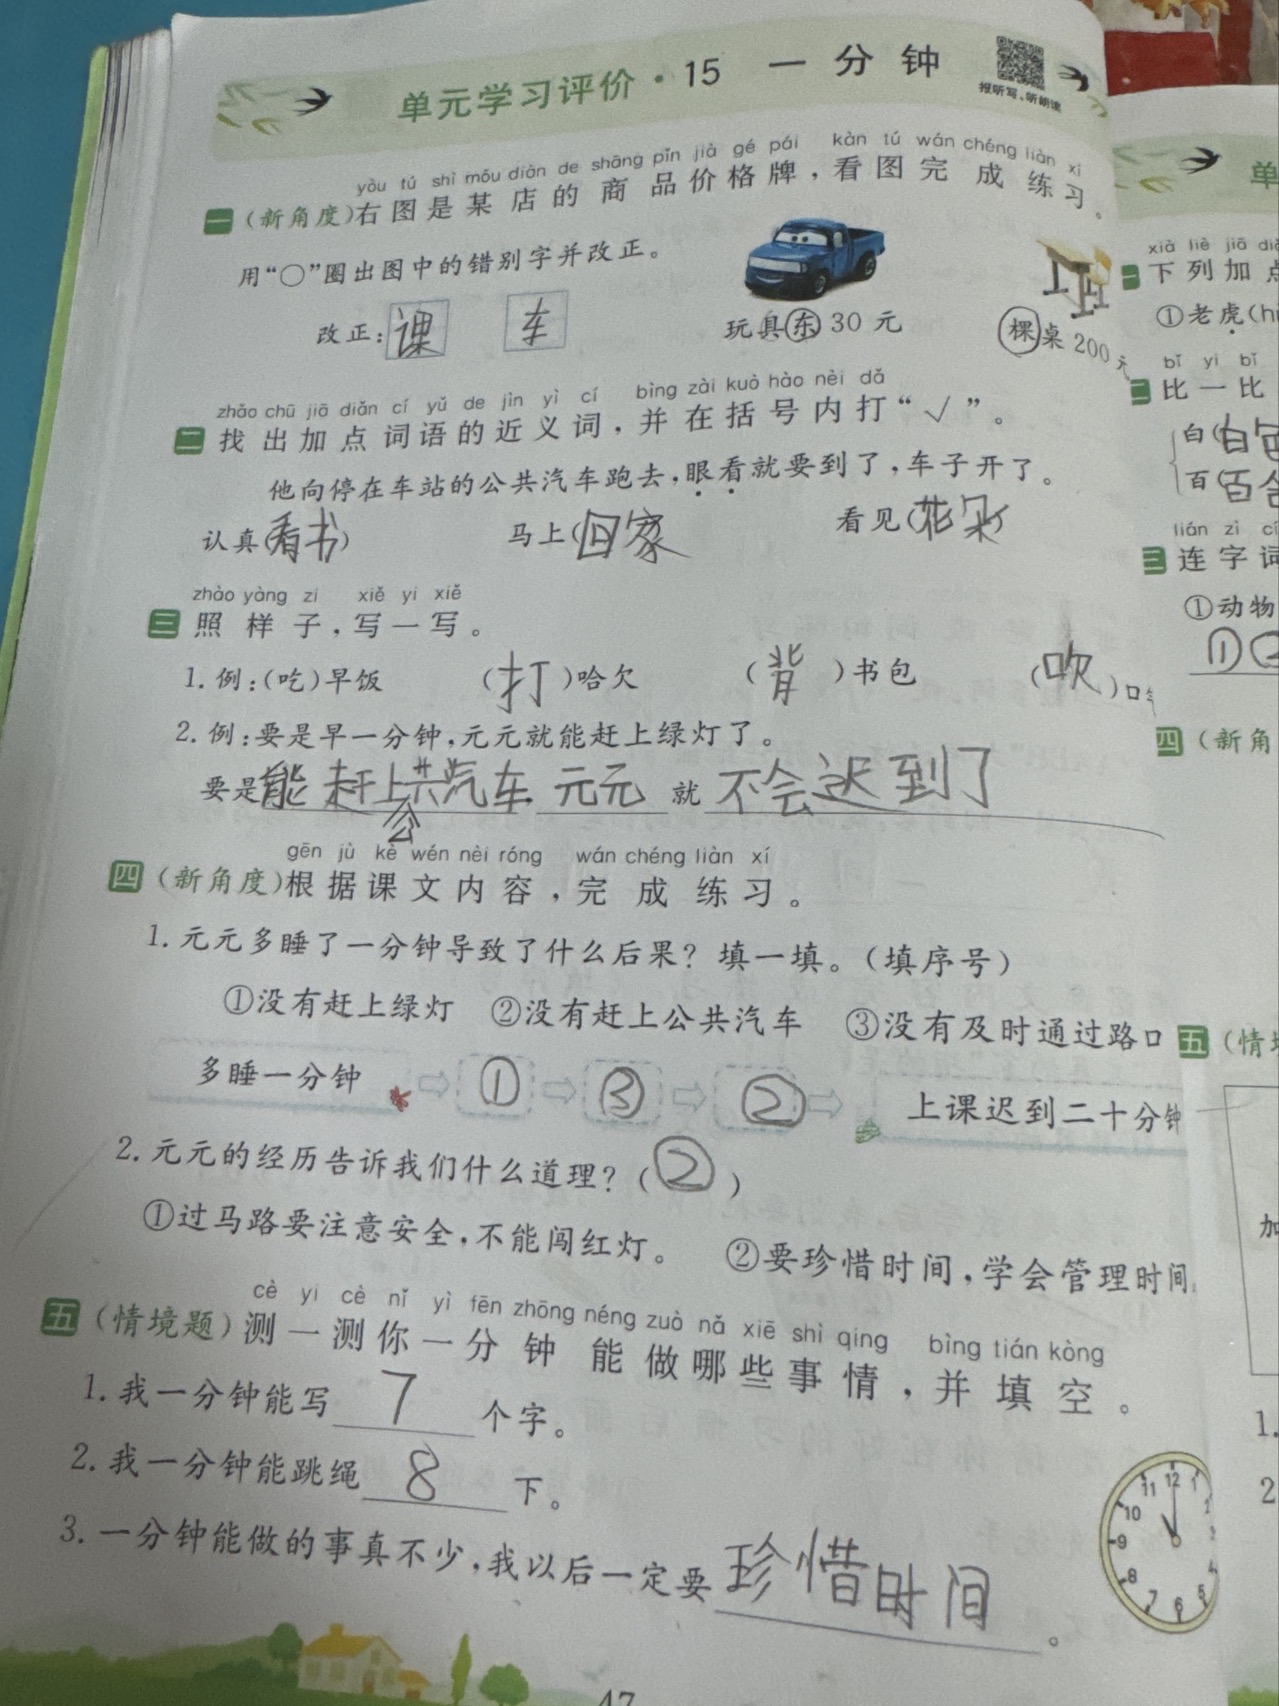 单元学习评价·15 一分钟
报听写、听朗读
yòu tú shì mǒu diàn de shāng pǐn jià gé pái kàn tú wán chéng liàn xí
一 (新角度)右图是某店的商品价格牌，看图完成练习。
用“○”圈出图中的错别字并改正。
改正：课 车
玩具东30元 棵桌200元
zhǎo chū jiā diǎn cí yǔ de jìn yì cí bìng zài kuò hào nèi dǎ
二 找出加点词语的近义词，并在括号内打“√”。
他向停在车站的公共汽车跑去，眼看就要到了，车子开了。
认真(看书) 马上(回家 看见(花朵)
zhào yàng zi xiě yi xiě
三 照样子，写一写。
1. 例：(吃)早饭 (打)哈欠 (背)书包 (吹)口
2. 例：要是早一分钟，元元就能赶上绿灯了。
要是能赶上公共汽车 元元 就 不会迟到了
gēn jù kè wén nèi róng wán chéng liàn xí
四 (新角度)根据课文内容，完成练习。
1. 元元多睡了一分钟导致了什么后果？填一填。(填序号)
①没有赶上绿灯 ②没有赶上公共汽车 ③没有及时通过路口
多睡一分钟 ① ③ ② 上课迟到二十分钟
2. 元元的经历告诉我们什么道理？(②)
①过马路要注意安全，不能闯红灯。 ②要珍惜时间，学会管理时间
cè yi cè nǐ yì fēn zhōng néng zuò nǎ xiē shì qing bìng tián kòng
五 (情境题)测一测你一分钟能做哪些事情，并填空。
1. 我一分钟能写 7 个字。
2. 我一分钟能跳绳 8 下。
3. 一分钟能做的事真不少，我以后一定要 珍惜时间。
11 12 1
10 2
9 3
8 4
7 6 5
47
单
xià liè jiā
一 下列加
①老虎(
bǐ yi bǐ
二 比一比
白(白色
百(百合
lián zì
三 连字词
①动物
①②
四 (新角
五 (情
加
1.
2